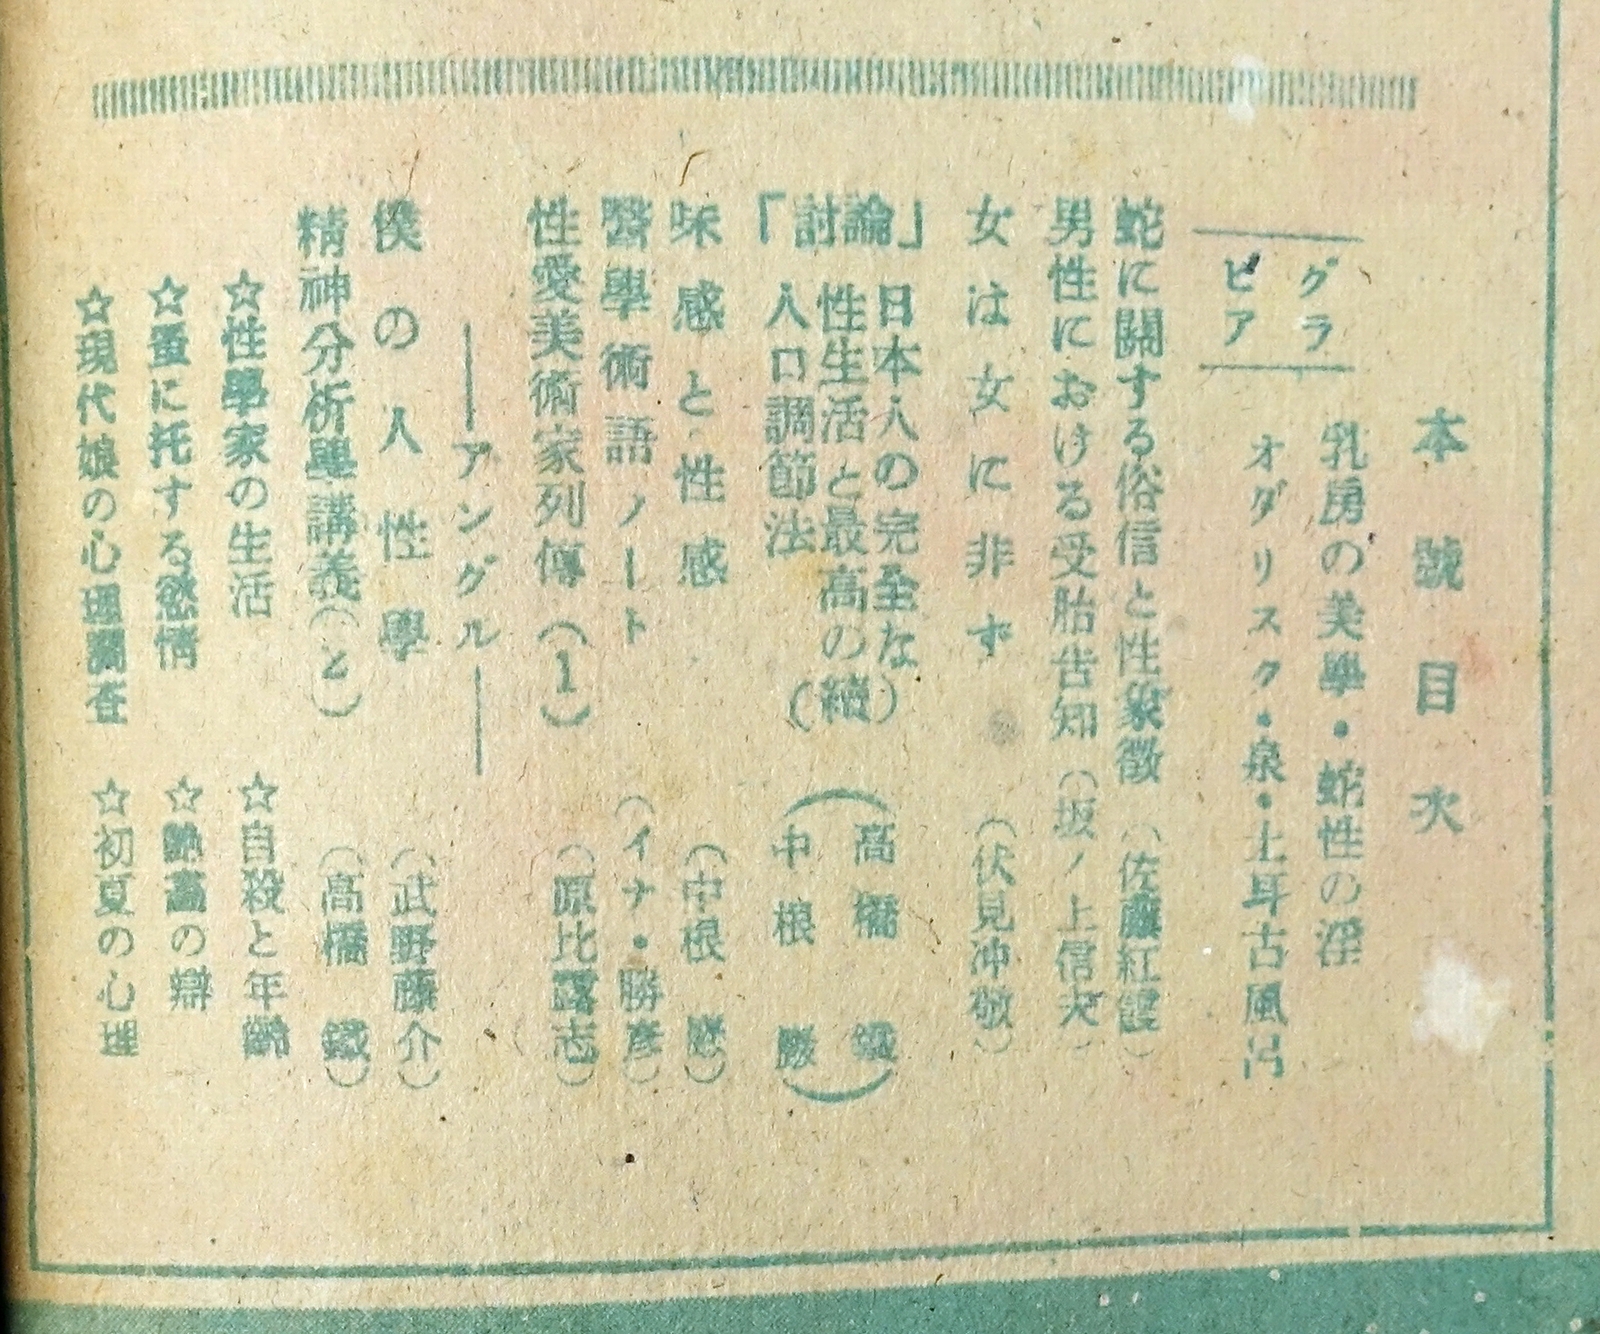 本號目次
グラビア
乳房の美學・蛇性の淫
オダリスク・泉・土耳古風呂
蛇に關する俗信と性象徵（佐藤紅霞）
男性における受胎告知（坂ノ上信夫）
女は女に非ず（伏見冲敬）
「討論」日本人の完全な性生活と最高の人口調節法（續）（高橋鐵 中根巖）
味感と性感（中根巖）
醫學術語ノート（イナ・勝彥）
性愛美術家列傳（1）（原比露志）
――アングル――
僕の人性學（武野藤介）
精神分析學講義（2）（高橋鐵）
☆性學家の生活 ☆自殺と年齡
☆蛋に托する慾情 ☆艶畵の辯
☆現代娘の心理調査 ☆初夏の心理